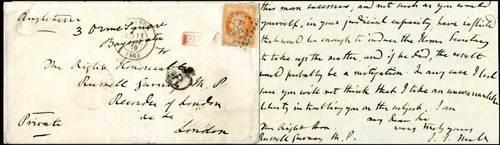 Angleterre
3 Orme Square
Bayswater
W
The Right Honourable
Russell Gurney M.P.
Recorder of London
&c &c
London
Private
PD
this more seriousness, and not such as you would
yourself, in your judicial capacity have inflicted
that would be enough to induce the Home Secretary
to take up the matter, and if he did, the result
would probably be a mitigation. In any case I hope
you will not think that I take an unwarrantable
liberty in troubling you on the subject. I am
my dear Sir
very truly yours
The Right Hon.
Russell Gurney M.P.
J. S. Mill